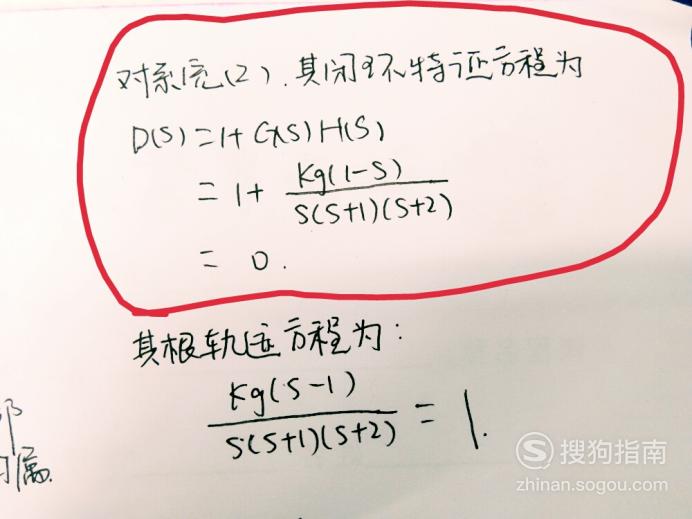 对系统(2).其闭环特征方程为
D(S)=1+G(S)H(S)
=1+ Kg(1-S)
S(S+1)(S+2)
= 0.
其根轨迹方程为:
Kg(S-1)
S(S+1)(S+2) = 1.
属
搜狗指南
zhinan.sogou.com